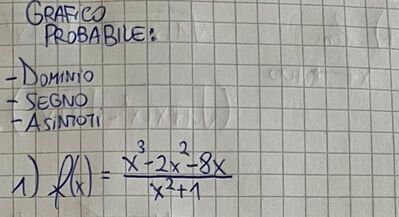 GRAFICO
PROBABILE:
- DOMINIO
- SEGNO
- ASINTOTI
1) f(x) = (x³-2x²-8x)/(x²+1)